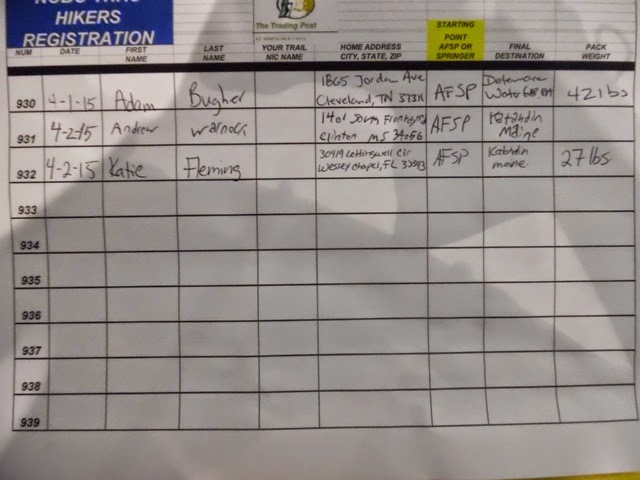 HIKERS
REGISTRATION
The Trading Post
NUM DATE FIRST NAME LAST NAME YOUR TRAIL NIC NAME HOME ADDRESS CITY, STATE, ZIP STARTING POINT AFSP OR SPRINGER FINAL DESTINATION PACK WEIGHT
930 4-1-15 Adam Bugher 1865 Jordan Ave Cleveland, TN AFSP Delaware Water Gap, PA 42 lbs
931 4-2-15 Andrew Warnock Clinton MS AFSP Katahdin Maine
932 4-2-15 Katie Fleming Cir Wesley Chapel, FL AFSP Katahdin maine 27 lbs
933
934
935
936
937
938
939